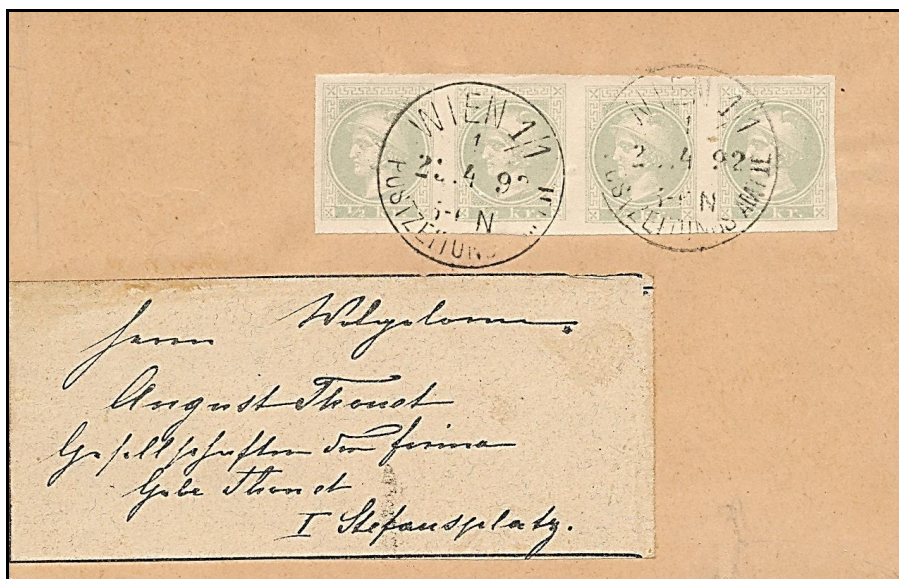 WIEN 1/1
1
2..4 92
5-6 N
POSTZEITUNGS AMT II
WIEN 1/1
1
2...4 92
N
POSTZEITUNGS AMT II
½ Kr.
Kr.
Kr.
Herrn
August Thonet
Gesellschafter der Firma
Gebr Thonet
I Stefansplatz.